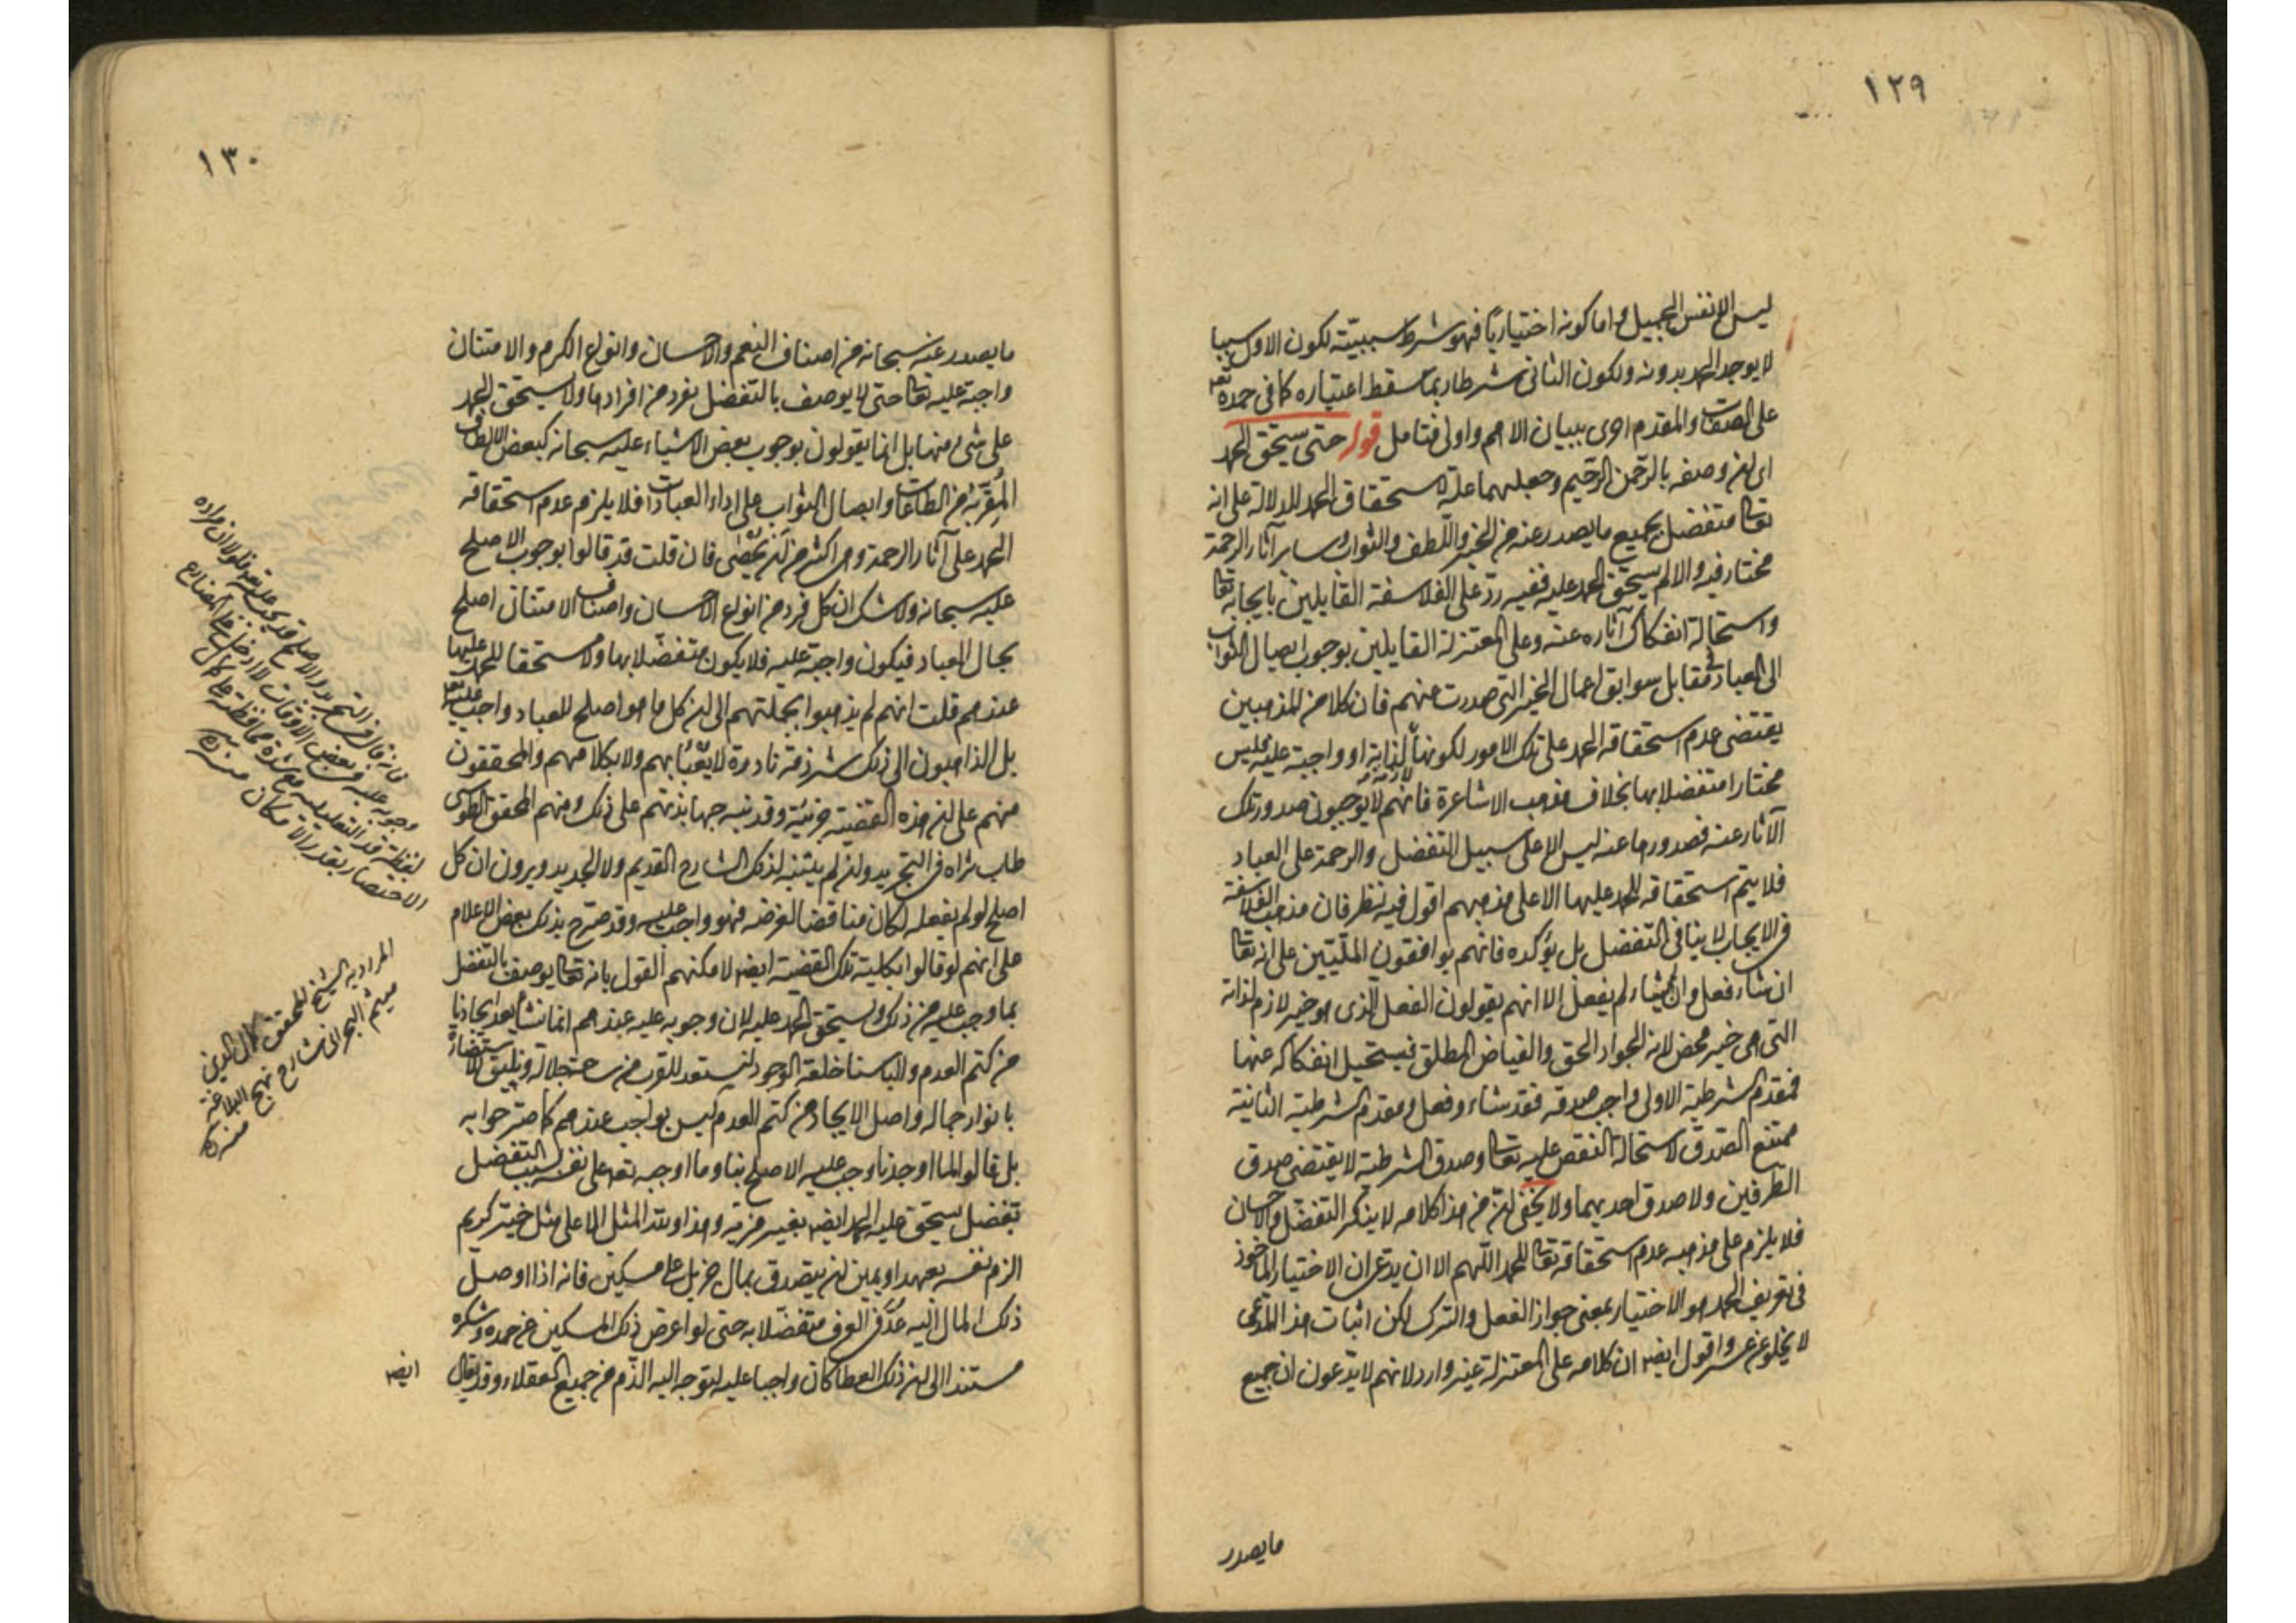 ١٢٩
ليس الا نفس الجميل واما كونه اختياريا فهو شرط سببيته لكون الاول سببا
لا يوجد الحمد بدونه ولكون الثانى شرطا ربما سقط اعتباره كما فى حمده تعه
على الصفات والمقدم احرى ببيان الاهم واولى فتامل قوله حتى يستحق الحمد
اى لان وصفه بالرحمن الرحيم وجعلهما علة لاستحقاق الحمد للدلالة على انه
تعالى متفضل بجميع ما يصدر عنه من الخير واللطف والثواب وساير آثار الرحمة
مختار فيه والا لم يستحق الحمد عليه ففيه ردّ على الفلاسفة القايلين بايجابه تعالى
واستحالة انفكاك آثاره عنه وعلى المعتزلة القايلين بوجوب ايصال الثواب
الى العباد فى مقابل سوابق اعمال الخير التى صدرت عنهم فان كلا من المذهبين
يقتضى عدم استحقاقه الحمد على تلك الامور لكونها لازمة لذاته او واجبة عليه فليس
مختارا متفضلا بها بخلاف مذهب الاشاعرة فانهم لا يوجبون صدور تلك
الآثار عنه فصدورها عنه ليس الا على سبيل التفضل والرحمة على العباد
فلا يتم استحقاقه الحمد عليها الا على مذهبهم اقول فيه نظر فان مذهب الفلاسفة
فى الايجاب لا ينافى التفضل بل يؤكده فانهم يوافقون المليين على انه تعالى
ان شاء فعل وان لم يشاء لم يفعل الا انهم يقولون الفعل الذى هو خير لازم لذاته
التى هى خير محض لانه الجواد الحق والفياض المطلق فيستحيل انفكاكه عنها
فمقدم الشرطية الاولى واجب صدقه فقد شاء وفعل ومقدم الشرطية الثانية
ممتنع الصدق لاستحالة النقص عليه تعالى وصدق الشرطية لا يقتضى صدق
الطرفين ولا صدق احديهما ولا يخفى ان من هذا كلامه لا ينكر التفضل والاحسان
فلا يلزم على مذهبه عدم استحقاقه تعالى للحمد اللهم الا ان يدعى ان الاختيار الماخوذ
فى تعريف الحمد هو الاختيار بمعنى جواز الفعل والترك لكن اثبات هذا المدعى
لا يخلو عن عسر واقول ايضا ان كلامه على المعتزلة غير وارد لانهم لا يدعون ان جميع
ما يصدر
١٣٠
ما يصدر عنه سبحانه من اصناف النعم والاحسان وانواع الكرم والامتنان
واجبة عليه تعالى حتى لا يوصف بالتفضل بفرد من افرادها ولا يستحق الحمد
على شئ منها بل انما يقولون بوجوب بعض الاشياء عليه سبحانه كبعض الالطاف
المقربة من الطاعات وايصال الثواب على اداء العبادات فلا يلزم عدم استحقاقه
الحمد على آثار الرحمة وهى اكثر من ان تحصى فان قلت قد قالوا بوجوب الاصلح
عليه سبحانه ولا شك ان كل فرد من انواع الاحسان واصناف الامتنان اصلح
بحال العباد فيكون واجبة عليه فلا يكون متفضلا بها ولا مستحقا للحمد عليها
عندهم قلت انهم لم يذهبوا بجملتهم الى ان كل ما هو اصلح للعباد واجب عليه تعه
بل الذاهبون الى ذلك شرذمة نادرة لا يعبأ بهم ولا بكلامهم والمحققون
منهم على ان هذه القضية جزئية وقد نبه جهابذتهم على ذلك ومنهم المحقق الطوسى
طاب ثراه فى التجريد وان لم يتنبه لذلك الشارح القديم ولا الجديد ويرون ان كل
اصلح لو لم يفعله لكان مناقضا لغرضه فهو واجب عليه وقد صرح بذلك بعض الاعلام
على انهم لو قالوا بكلية تلك القضية ايضا لامكنهم القول بانه تعالى يوصف بالتفضل
بما وجب عليه من ذلك ويستحق الحمد عليه لان وجوبه عليه عندهم انما نشأ بعد ايجادنا
من كتم العدم والباسنا خلعة الوجود لنستعد للقرب من ساحة جلاله ونليق للاستضاءة
بانوار جماله واصل الايجاد من كتم العدم ليس بواجب عندهم كما صرحوا به
بل قالوا لما اوجدنا وجب عليه الاصلح بنا وما اوجبه تعه على نفسه بسبب التفضل
تفضل يستحق عليه الحمد ايضا بغير مزية وهذا ولله المثل الاعلى مثل خير كريم
الزم نفسه بعهد او يمين ان يتصدق بمال جزيل على مسكين فانه اذا اوصل
ذلك المال اليه عُدّ فى العرف متفضلا به حتى لو اعرض ذلك المسكين عن حمده وشكره
مستندا الى ان ذلك العطا كان واجبا عليه لتوجه اليه الذم من جميع العقلاء وقد يقال
ايضا
فانه قال فى التجريد والاصلح قد يجب عليه تعه
وجوبه عليه فى بعض الاوقات
لفظة قد
الاختصار بقدر الامكان منه
المراد به الشيخ المحقق كمال الدين
ميثم البحرانى شارح نهج البلاغة
منه